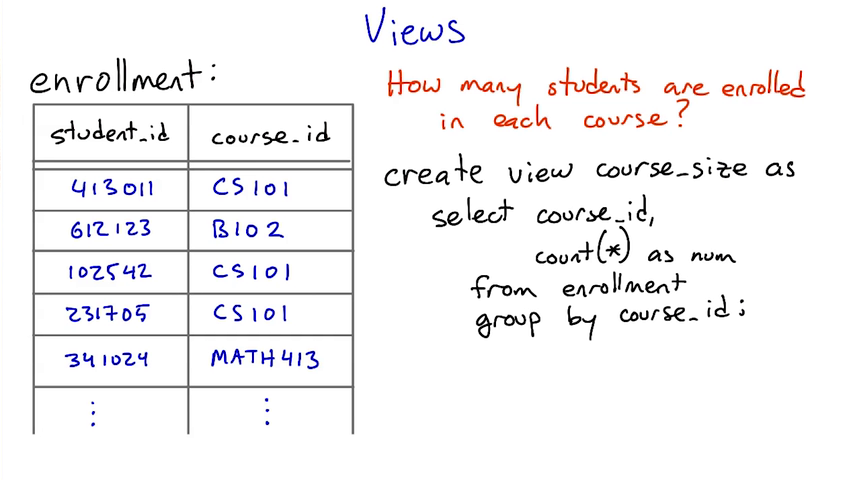 Views
enrollment:
student_id course_id
413011 CS101
612123 B102
102542 CS101
231705 CS101
341024 MATH413
How many students are enrolled
in each course?
create view course_size as
select course_id,
count(*) as num
from enrollment
group by course_id;